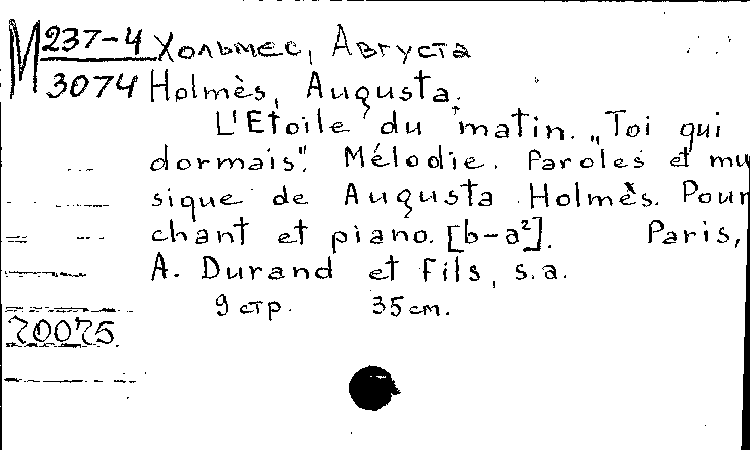 М 237-4 Хольмес, Августа
3074 Holmès, Augusta.
L'Etoile du matin. „Toi qui
dormais". Mélodie. Paroles et mu
sique de Augusta Holmès. Pour
chant et piano. [b-a²]. Paris,
A. Durand et fils, s.a.
9 стр. 35 см.
70075